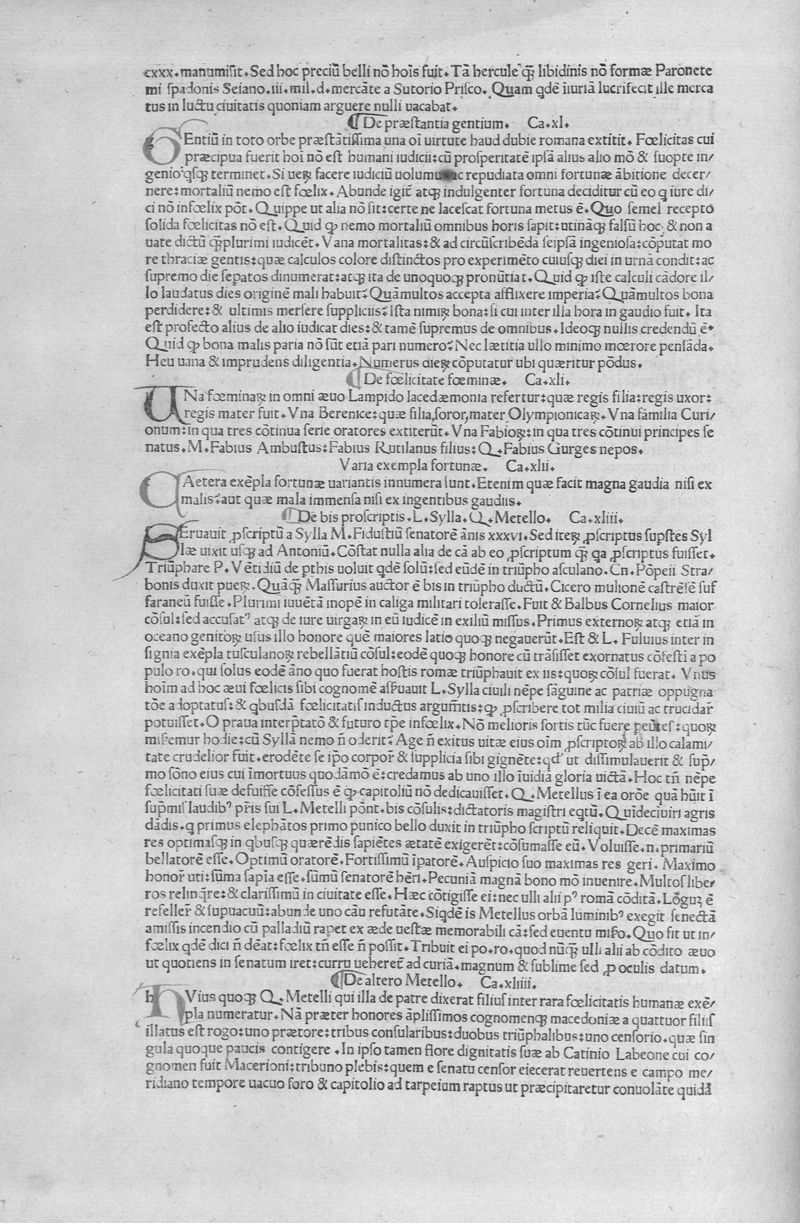 cxxx. manumisit. Sed hoc preciū belli nō hoīs fuit. Tā hercule q̄ libidinis nō formæ Paronete
mi spadonis Seiano. iii. mil. d. mercāte a Sutorio Prisco. Quam qdē iīuriā lucrifecit ille merca
tus in luctu ciuitatis quoniam arguere nulli uacabat.
¶ De præstantia gentium. Ca. xl.
GEntiū in toto orbe præstātissima una oī uirtute haud dubie romana extitit. Fœlicitas cui
præcipua fuerit hoī nō est humani iudicii: cū prosperitatē ipsā alius alio mō & suopte in/
genio qsq; terminet. Si ueꝝ facere iudiciū uolumus ac repudiata omni fortunæ ābitione decer/
nere: mortaliū nemo est fœlix. Abunde igiť atq; indulgenter fortuna deciditur cū eo q iure di/
ci nō infœlix pōt. Quippe ut alia nō sit: certe ne lacescat fortuna metus ē. Quo semel recepto
solida fœlicitas nō est. Quid ꝙ nemo mortaliū omnibus horis sapit: utināq; falsū hoc & non a
uate dictū q̄plurimi iudicēt. Vana mortalitas: & ad circūscribēda seipsā ingeniosa: cōputat mo
re thraciæ gentis: quæ calculos colore distinctos pro experimēto cuiusq; diei in urnā condit: ac
supremo die sepatos dinumerat: atq; ita de unoquoq; pronūtiat. Quid ꝙ iste calculi cādore il/
lo laudatus dies originē mali habuit? Quāmultos accepta afflixere imperia? Quāmultos bona
perdidere: & ultimis mersere suppliciis? ista nimiꝝ bona: si cui inter illa hora in gaudio fuit. Ita
est profecto alius de alio iudicat dies: & tamē supremus de omnibus. Ideoq; nullis credendū ē.
Quid ꝙ bona malis paria nō sūt etiā pari numero? Nec lætitia ullo minimo mœrore pensāda.
Heu uana & imprudens diligentia. Numerus dieꝝ cōputatur ubi quæritur pōdus.
¶ De fœlicitate fœminæ. Ca. xli.
UNa fœminaꝝ in omni æuo Lampido lacedæmonia refertur: quæ regis filia: regis uxor:
regis mater fuit. Vna Berenice: quæ filia, soror, mater Olympionicaꝝ. Vna familia Curi/
onum: in qua tres cōtinua serie oratores extiterūt. Vna Fabioꝝ: in qua tres cōtinui principes se
natus. M. Fabius Ambustus: Fabius Rutilanus filius: Q. Fabius Gurges nepos.
Varia exempla fortunæ. Ca. xlii.
CAetera exēpla fortunæ uariantis innumera sunt. Etenim quæ facit magna gaudia nisi ex
malis? aut quæ mala immensa nisi ex ingentibus gaudiis.
¶ De bis proscriptis. L. Sylla. Q. Metello. Ca. xliii.
SEruauit ꝓscriptū a Sylla M. Fidustiū senatorē ānis xxxvi. Sed iteꝝ ꝓscriptus supstes Syl
læ uixit usq; ad Antoniū. Cōstat nulla alia de cā ab eo ꝓscriptum q̄ qa ꝓscriptus fuisset.
Triūphare P. Vētidiū de pthis uoluit qdē solū: sed eūdē in triūpho asculano. Cn. Pōpeii Stra/
bonis duxit pueꝝ. Quāq; Massurius auctor ē bis in triūpho ductū. Cicero mulionē castrēsē suf
faraneū fuisse. Plurimi iuuētā inopē in caliga militari tolerasse. Fuit & Balbus Cornelius maior
cōsul: sed accusat' atq; de iure uirgaꝝ in eū iudicē in exiliū missus. Primus externoꝝ atq; etiā in
oceano genitoꝝ usus illo honore quē maiores latio quoq; negauerūt. Est & L. Fuluius inter in
signia exēpla tusculanoꝝ rebellātiū cōsul: eodē quoq; honore cū trāsisset exornatus cōfesti a po
pulo ro. qui solus eodē āno quo fuerat hostis romæ triūphauit ex iis: quoꝝ cōsul fuerat. Vnus
hoīm ad hoc æui fœlicis sibi cognomē asseruauit L. Sylla ciuili nēpe sāguine ac patriæ oppugna
tōe adoptatus: & qbusdā fœlicitatis inductus argumētis: ꝙ ꝓscribere tot milia ciuiū ac trucidar̄
potuisset. O praua interptatō & futuro tpe infœlix. Nō melioris sortis tūc fuere peūtes: quoꝝ
miseremur hodie: cū Syllā nemo n̄ oderit? Age n̄ exitus uitæ eius oīm ꝓscriptoꝝ ab illo calami/
tate crudelior fuit. erodēte se ipo corpor̄ & supplicia sibi gignēte: qd' ut dissimulauerit & sup/
mo sōno eius cui īmortuus quodāmō ē: credamus ab uno illo īuidiā gloria uictā. Hoc tn̄ nēpe
fœlicitati suæ defuisse cōfessus ē ꝙ capitoliū nō dedicauisset. Q. Metellus ī ea orōe quā hūit ī
supmis laudib' pr̄is sui L. Metelli pōnt. bis cōsulis: dictatoris magistri eqtū. Quīdeciuiri agris
dādis. q primus elephātos primo punico bello duxit in triūpho scriptū reliquit. Decē maximas
res optimasq; in qbusq; quærēdis sapiētes ætatē exigerēt: cōsumasse eū. Voluisse. n. primariū
bellatorē esse. Optimū oratorē. Fortissimū īpatorē. Auspicio suo maximas res geri. Maximo
honor̄ uti: sūma sapīa esse. sūmū senatorē hēri. Pecuniā magnā bono mō inuenire. Multos libe/
ros relinqre: & clarissimū in ciuitate esse. Hæc cōtigisse ei: nec ulli alii p' romā cōditā. Lōguꝫ ē
refeller̄ & supuacuū: abunde uno cāu refutāte. Siqdē is Metellus orbā luminib' exegit senectā
amissis incendio cū palladiū rapet ex æde uestæ memorabili cā: sed euentu miso. Quo fit ut in/
fœlix qdē dici n̄ dēat: fœlix tn̄ esse n̄ possit. Tribuit ei po. ro. quod nūq; ulli alii ab cōdito æuo
ut quotiens in senatum iret: curru ueheret ad curiā. magnum & sublime sed ꝓ oculis datum.
¶ De altero Metello. Ca. xliiii.
HVius quoq; Q. Metelli qui illa de patre dixerat filius inter rara fœlicitatis humanæ exē/
pla numeratur. Nā præter honores āplissimos cognomenq; macedoniæ a quattuor filiis
illatus est rogo: uno prætore: tribus consularibus: duobus triūphalibus: uno censorio. quæ sin
gula quoque paucis contigere. In ipso tamen flore dignitatis suæ ab Catinio Labeone cui co/
gnomen fuit Macerioni: tribuno plebis: quem e senatu censor eiecerat reuertens e campo me/
ridiano tempore uacuo foro & capitolio ad tarpeium raptus ut præcipitaretur conuolāte quidā